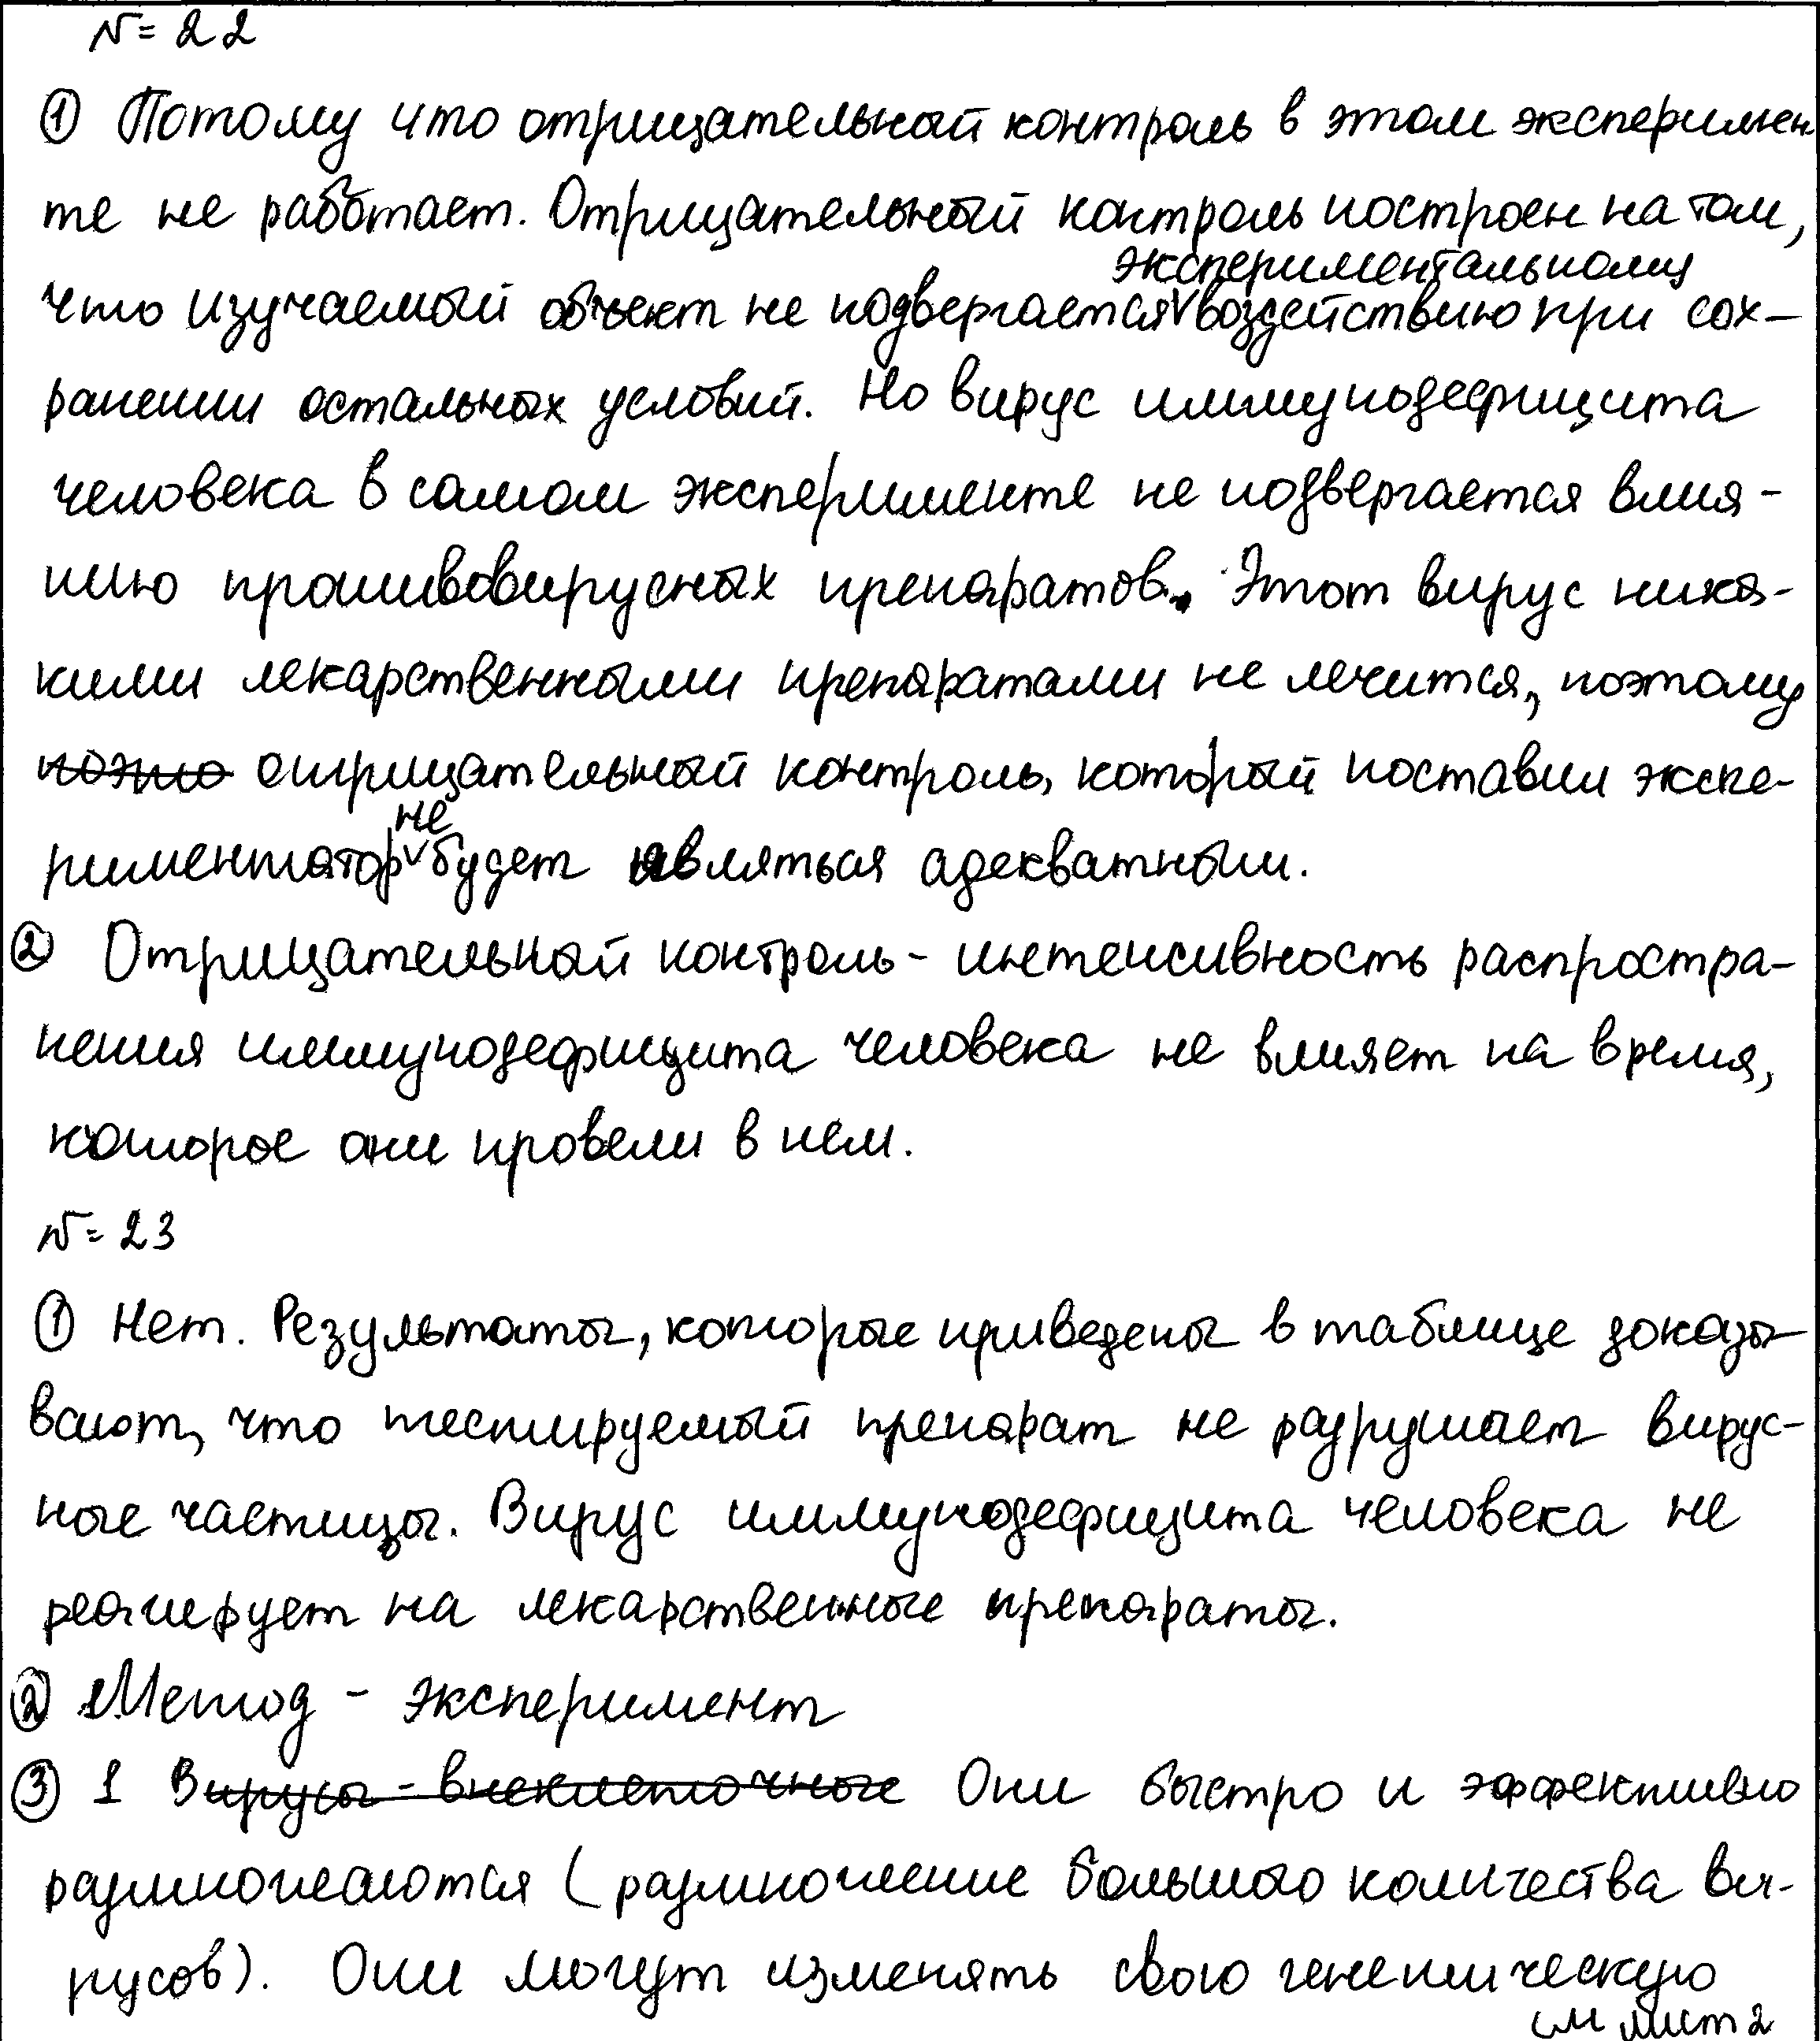 N= 22
① Потому что отрицательный контроль в этом эксперимен
те не работает. Отрицательный контроль построен на том,
экспериментальному
что изучаемый объект не подвергается ∨ воздействию при сох-
ранении остальных условий. Но вирус иммунодефицита
человека в самом эксперименте не подвергается влия-
нию противовирусных препаратов. Этот вирус ника-
кими лекарственными препаратами не лечится, поэтому
поэто отрицательный контроль, который поставил экспе-
не
риментатор ∨ будет являться адекватным.
② Отрицательный контроль - интенсивность распростра-
нения иммунодефицита человека не влияет на время,
которое они провели в нем.
N= 23
① Нет. Результаты, которые приведены в таблице доказы
вают, что тестируемый препарат не разрушает вирус-
ные частицы. Вирус иммунодефицита человека не
реагирует на лекарственные препараты.
② Метод - эксперимент
③ 1 Вирусы - внеклеточные Они быстро и эффективно
размножаются (размножение большого количества ви-
русов). Они могут изменять свою генетическую
см лист 2